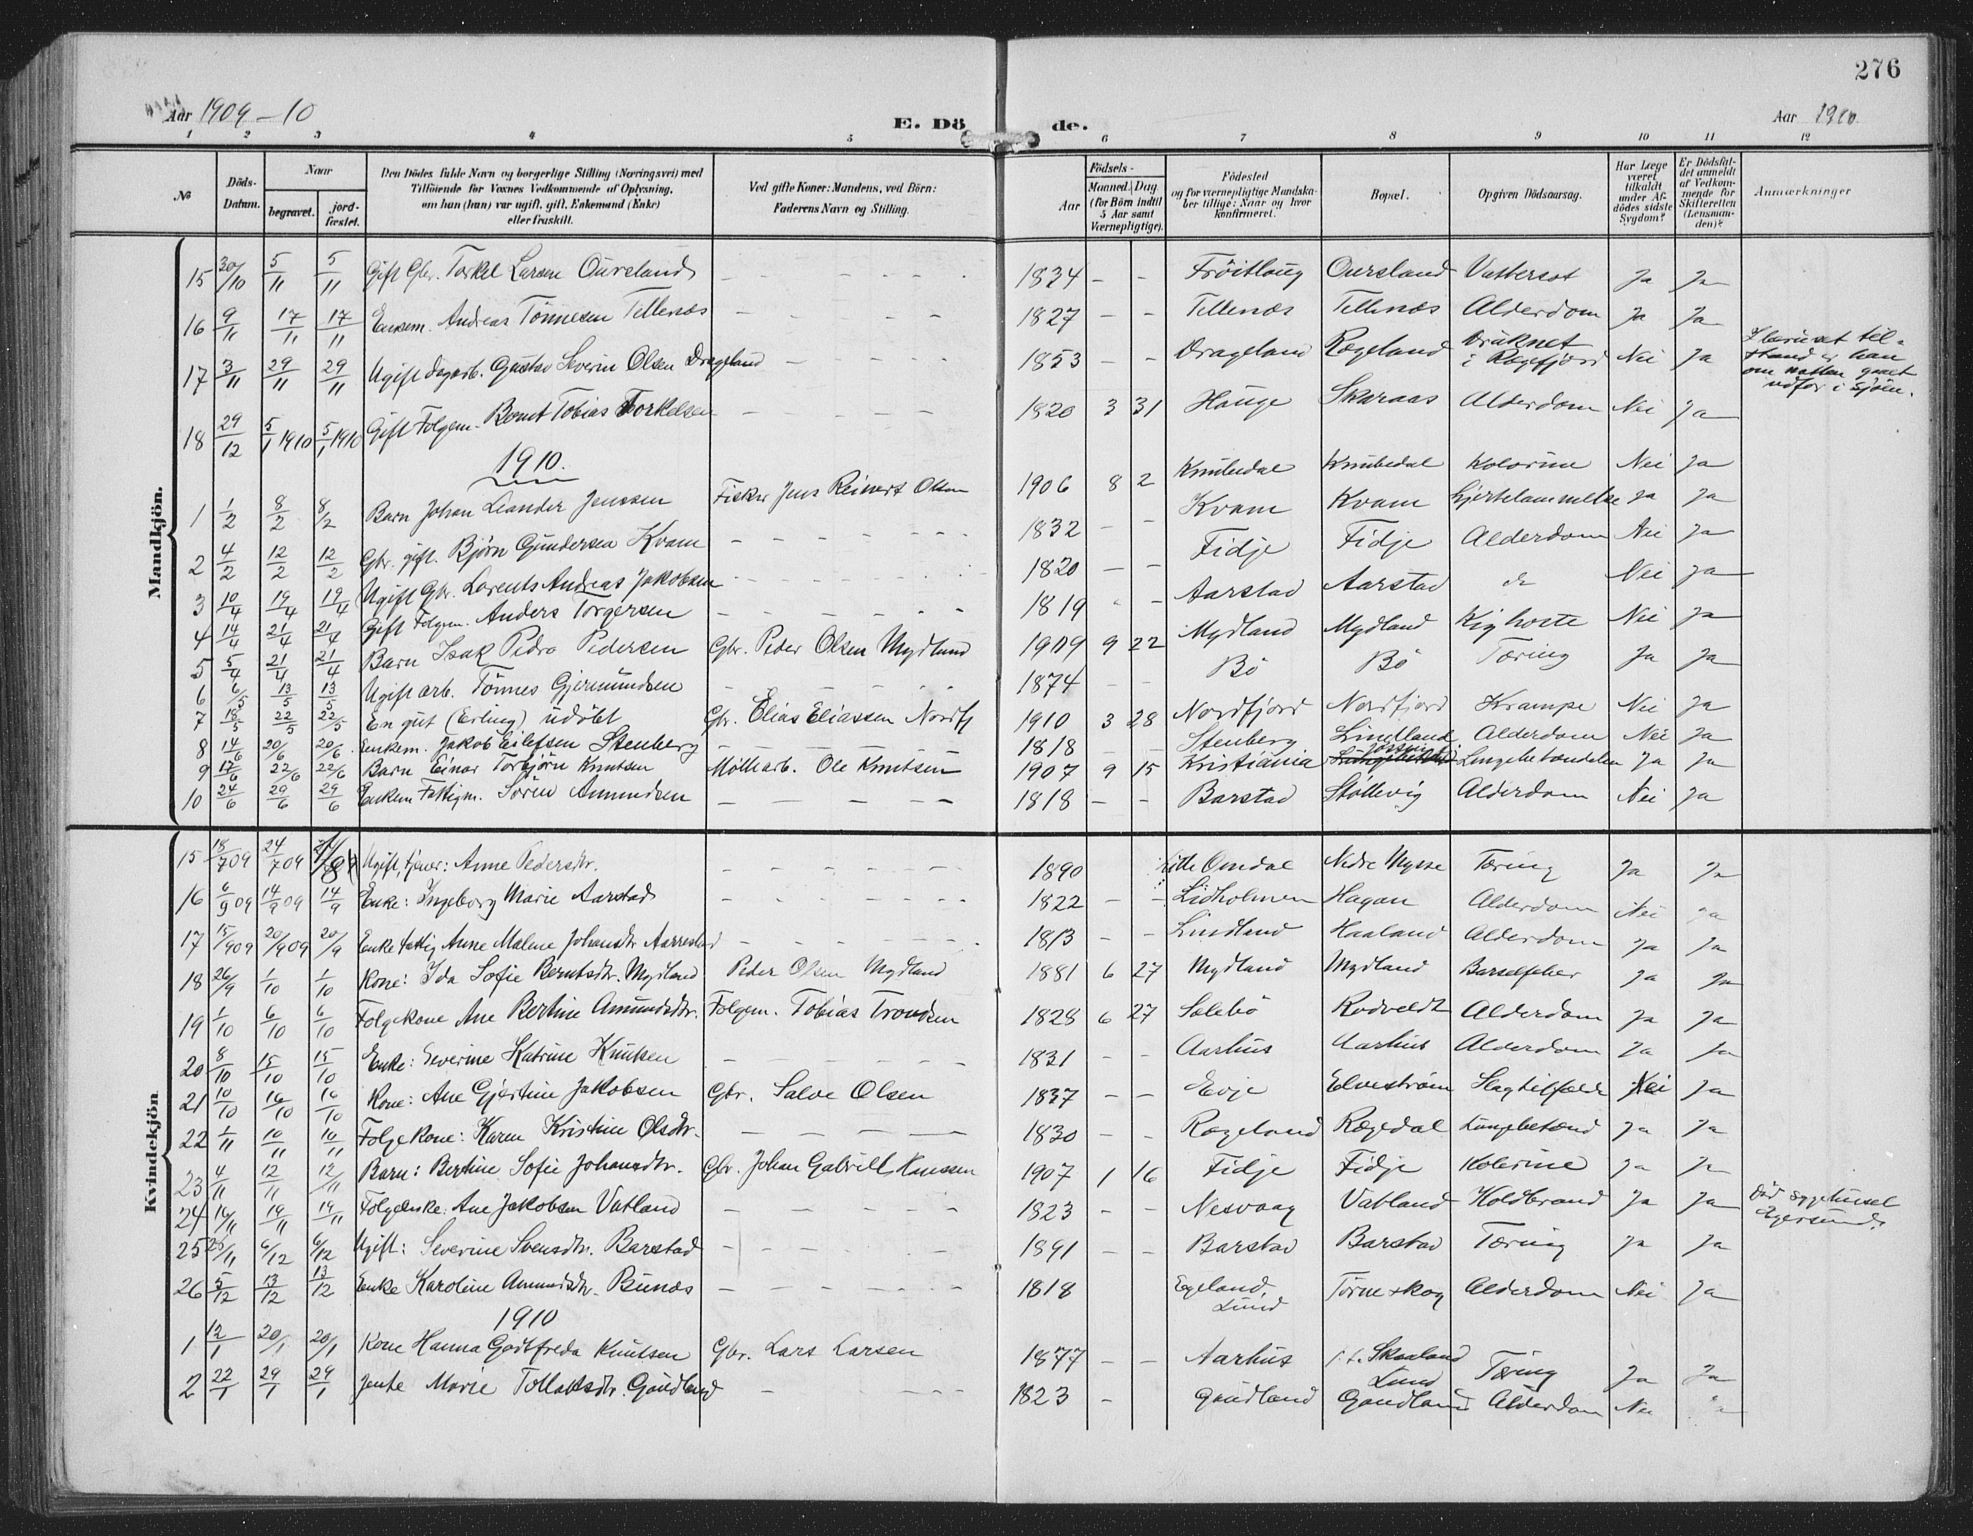 276
Aar 1909-10 E. Dö de. Aar 1910.
1 2 3 4 5 6 7 8 9 10 11 12
№ Döds-Datum. Naar begravet. jord-fæstet. Den Dödes fulde Navn og borgerlige Stilling (Næringsvei) med Tilföiende for Voxnes Vedkommende af Oplysning, om han (hun) var ugift, gift, Enkemand (Enke) eller fraskilt. Ved gifte Koner: Mandens, ved Börn: Faderens Navn og Stilling. Födsels- Aar Maaned. Dag (for Börn indtil 5 Aar samt Værnepligtige). Födested og for værnepligtige Mandskaber tillige: Naar og hvor konfirmeret. Bopæl. Opgiven Dödsaarsag. Har Læge været tilkaldt under Afdödes sidste Sygdom? Er Dödsfaldet anmeldt af Vedkommende for Skifteretten (Lensmanden)? Anmærkninger
Mandkjön.
15 30/10 5/11 5/11 Gift Gbr. Torkel Larsen Oursland - - - - - 1834 - - Fröitlaug Oursland Vattersot Ja Ja
16 9/11 17/11 17/11 Enkem. Andreas Tönnesen Tellenæs - - - - - 1827 - - Tellenæs Tellenæs Alderdom Ja Ja
17 3/11 29/11 29/11 Ugift dagarb. Gustav Severin Olsen Drageland - 1853 - - Drageland Rægeland Druknet i Rægefjord Nei Ja I beruset til-stand er han om natten gaaet udfor i sjöen.
18 29/12 5/1 1910 5/1 1910 Gift Folgem. Bernt Tobias Torkelsen - - - - 1820 3 31 Hauge Skaraas Alderdom Nei Ja
1910.
1 1/2 8/2 8/2 Barn Johan Leander Jenssen Fisker Jens Reinert Olsen 1906 8 2 Knubedal Knubedal Kolorine Nei Ja
2 4/2 12/2 12/2 Gbr. gift. Björn Gundersen Kvam - - - - 1832 - - Kvam Kvam Hjertelammelse Ja Ja
3 10/4 19/4 19/4 Ugift Gbr. Lorents Andreas Jakobsen - - - - 1820 - - Fidje Fidje Alderdom Nei Ja
4 14/4 21/4 21/4 Gift Folgem. Anders Torgersen - - - - 1819 - - Aarstad Aarstad do Nei Ja
5 5/4 21/4 21/4 Barn Isak Pedro Pedersen Gbr. Peder Olsen Mydland 1909 9 22 Mydland Mydland Kighoste Nei Ja
6 6/5 13/5 13/5 Ugift arb. Tönnes Gjermundsen - - - - 1874 - - Bö Bö Tæring Ja Ja
7 18/5 22/5 22/5 En gut (Erling) udöbt Gbr. Elias Eliassen Nordfj 1910 3 28 Nordfjord Nordfjord Krampe Nei Ja
8 14/6 20/6 20/6 Enkem. Jakob Eilefsen Stenberg - - - - 1818 - - Stenberg Lindland Alderdom Nei Ja
9 17/6 22/6 22/6 Barn Einar Torbjörn Knutsen Möllearb. Ole Knutsen 1907 9 15 Kristiania Jössing Lungebetændelse Ja Ja
10 24/6 29/6 29/6 Enkem Fattigm. Sören Amundsen - - - - 1818 - - Barstad Stöllevig Alderdom Nei Ja
Kvindekjön
15 18/7 09 24/7 09 Ugift, tjener: Anne Pedersdtr. - - - - 1890 Omdal Nedre Mysse Tæring Ja Ja
16 6/9 09 14/9 09 14/9 Enke: Ingeborg Marie Aarstad - - - - 1822 - - Lidholmen Hagan Alderdom Nei Ja
17 15/9 09 20/9 09 20/9 Enke fattig Anne Malene Johansdtr Aarrestad - - - - 1813 - - Lindland Haaland Alderdom Ja Ja
18 26/9 1/10 1/10 Kone: Ida Sofie Berntsdtr. Mydland Peder Olsen Mydland 1881 6 27 Mydland Mydland Barselfeber Ja Ja
19 1/10 6/10 6/10 Folgekone Ane Bertine Amundsdtr. Folgem. Tobias Trondsen 1828 6 27 Salebö Rodveldt Alderdom Ja Ja
20 8/10 15/10 15/10 Enke: Severine Katrine Knutsen - - - - 1831 - - Aarhus Aarhus Alderdom Ja Ja
21 10/10 16/10 16/10 Kone: Ane Gjertine Jakobsen Gbr. Salve Olsen 1837 - - Evje Elveström Slagtilfæld Nei Ja
22 1/11 10/11 10/11 Folgekone: Karen Kristine Olsdtr. - - - - 1830 - - Rægeland Rægedal Lungebetænd Ja Ja
23 4/11 12/11 12/11 Barn: Bertine Sofie Johansdtr. Gbr. Johan Gabriell Hanssen 1907 1 16 Fidje Fidje Kolerine Ja Ja
24 14/11 19/11 19/11 Folgeenke: Ane Jakobsen Vatland - - - - 1823 - - Nesvaag Vatland Koldbrand Ja Ja Död sygehuset Egersund.
25 25/11 6/12 6/12 Ugift: Severine Svensdtr. Barstad - - - - 1891 - - Barstad Barstad Tæring Ja Ja
26 5/12 13/12 13/12 Enke Karoline Amundsdtr. Bunæs - - - - 1818 Egeland, Lund Torneskog Alderdom Nei Ja
1910
1 12/1 20/1 20/1 Kone Hanna Godtfreda Knutsen Gbr. Lars Larsen 1877 - - Aarhus Skaaland Lund Tæring Ja Ja
2 22/1 29/1 29/1 Jente Marie Tollaksdtr. Gaudland - - - - 1823 - Gaudland Gaudland Alderdom Nei Ja